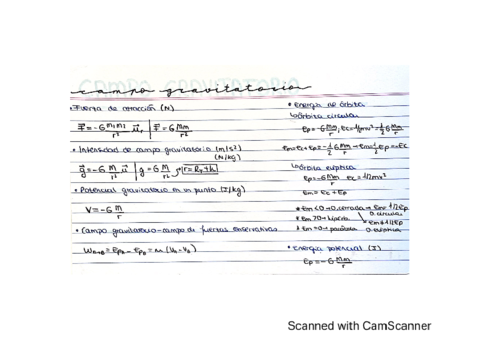 CAMPO GRAVITATORIO
campo gravitatorio
• Fuerza de atracción (N)
F⃗ = -G m₁m₂/r² u⃗ᵣ | F⃗ = G Mm/r²
• Intensidad de campo gravitatorio (m/s²)
(N/kg)
g⃗ = -G m/r² u⃗ | g = G m/r² r = R_T + h
• Potencial gravitatorio en un punto (J/kg)
V = -G m/r
• Campo gravitatorio - campo de fuerzas conservativas
W_A→B = Ep_A - Ep_B = m (V_A - V_B)
• energía de órbita
↳ órbita circular
Ep = -G Mm/r ; Ec = 1/2 mv² = 1/2 G Mm/r
Em = Ec + Ep = -1/2 G Mm/r → Em = 1/2 Ep = -Ec
↳ órbita elíptica
Ep = -G Mm/r Ec = 1/2 mv²
Em = Ec + Ep
• Em < 0 → o. cerrada → Em = 1/2 Ep
o. circular
• Em > 0 → hipérb
Em ≠ 1/2 Ep
• Em = 0 → parábola
o. elíptica
• energía potencial (J)
Ep = -G Mm/r
Scanned with CamScanner